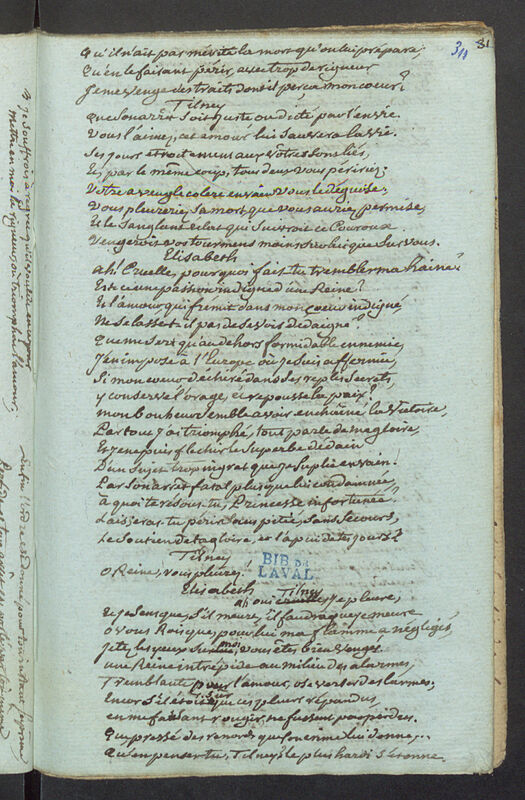 31
311
Qu'il n'ait pas mérité la mort qu'on lui prépare;
Qu'en le faisant périr, avec trop de rigueur
Je me venge des traits dont il perça mon coeur?
Tilney
que son arrêt soit juste ou dicté par l'envie
Vous l'aimez, cet amour lui sauvera la vie.
Ses jours étroitement aux vôtres sont liés,
Et par le même coup, tous deux vous péririez.
Votre aveugle colere en vain vous le déguise:
Vous pleureriez sa mort que vous auriez permise,
Et le sanglant éclat qui suivroit ce couroux
Vengeroit vos tourmens moins sur lui que sur vous.
Elisabeth
Ah! Cruelle, pourquoi fais-tu trembler ma haine?
Est-ce une passion indigne d'une Reine?
Et l'amour qui fremit dans mon coeur indigné
Ne se lasse-t-il pas de se voir dédaigné?
Que me sert qu'au dehors formidable ennemie,
J'en impose à l'Europe où je suis affermie,
Si mon coeur déchiré dans ses replis secrets,
y conserve l'orage, et repousse la paix?
mon bonheur semble avoir enchaîné la victoire,
Partout j'ai triomphé, tout parle de ma gloire,
Et je ne puis fléchir le superbe dédain
D'un sujet trop ingrat que je suplie en vain!
Par son arrêt fatal plus que lui condamnée,
à quoi te résous-tu, Princesse infortunée?
Laisseras-tu périr sans pitié, sans secours,
Le soutien de ta gloire, et l'apui de tes jours?
Tilney
O Reine, vous pleurez.
BIB DE
LAVAL
Elisabeth
ah oui Tilney je pleure,
Et je sens que, s'il meurt, il faudra que je meure
ô vous Rois que pour lui ma flamme a négligés
jetez les yeux sur moi, vous êtes bien vengés.
une Reine intrépide au milieu des alarmes,
Tremblante pour l'amour, ose verser des larmes;
Encor s'il étoit sur que ces pleurs répandus
en me faisant rougir, ne fussent pas perdus.
Que pressé des remords que son crime lui donne...
Qu'en penses-tu, Tilney? le plus hardi s'étonne.
Je souffrois à
Mettre en moi la rigueur, où triomphe l'amour;
Enfin l'ordre est donné pour son instant suprême